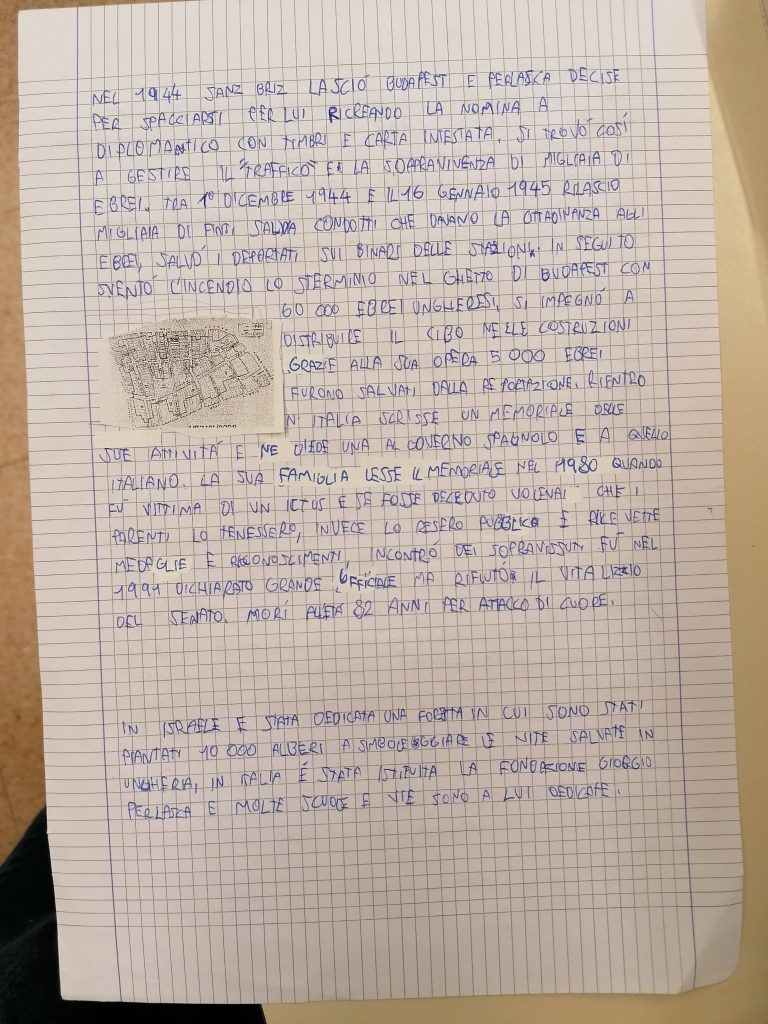 NEL 1944 SANZ BRIZ LASCIÓ BUDAPEST E PERLASCA DECISE
PER SPACCIARSI PER LUI RICREANDO LA NOMINA A
DIPLOMATICO CON TIMBRI E CARTA INTESTATA. SI TROVÓ COSÍ
A GESTIRE IL "TRAFFICO" E LA SOPRAVIVENZA DI MIGLIAIA DI
EBREI. TRA 1º DICEMBRE 1944 E IL 16 GENNAIO 1945 RILASCIÓ
MIGLIAIA DI FINTI SALVA CONDOTTI CHE DAVANO LA CITTADINANZA AGLI
EBREI, SALVÓ I DEPORTATI SUI BINARI DELLE STAZIONI. IN SEGUITO
SVENTÓ L'INCENDIO LO STERMINIO NEL GHETTO DI BUDAPEST CON
60 000 EBREI UNGHERESI, SI IMPEGNÓ A
DISTRIBUIRE IL CIBO NELLE COSTRUZIONI
GRAZIE ALLA SUA OPERA 5 000 EBREI
FURONO SALVATI DALLA DEPORTAZIONE. RIENTRO
IN ITALIA SCRISSE UN MEMORIALE DELLE
SUE ATTIVITÁ E NE DIEDE UNA AL GOVERNO SPAGNOLO E A QUELLO
ITALIANO. LA SUA FAMIGLIA LESSE IL MEMORIALE NEL 1980 QUANDO
FÚ VITTIMA DI UN ICTUS E SE FOSSE DECEDUTO VOLEVA CHE I
PARENTI LO TENESSERO, INVECE LO RESERO PUBBLICO E RICEVETTE
MEDAGLIE E RICONOSCIMENTI, INCONTRÓ DEI SOPRAVISSUTI FÚ NEL
1991 DICHIARATO GRANDE UFFICIALE MA RIFIUTÓ IL VITALIZIO
DEL SENATO. MORÍ ALL'ETÁ 82 ANNI PER ATTACCO DI CUORE.
IN ISRAELE E STATA DEDICATA UNA FORESTA IN CUI SONO STATI
PIANTATI 10 000 ALBERI A SIMBOLEGGIARE LE VITE SALVATE IN
UNGHERIA, IN ITALIA É STATA ISTITUITA LA FONDAZIONE GIORGIO
PERLASCA E MOLTE SCUOLE E VIE SONO A LUI DEDICATE.